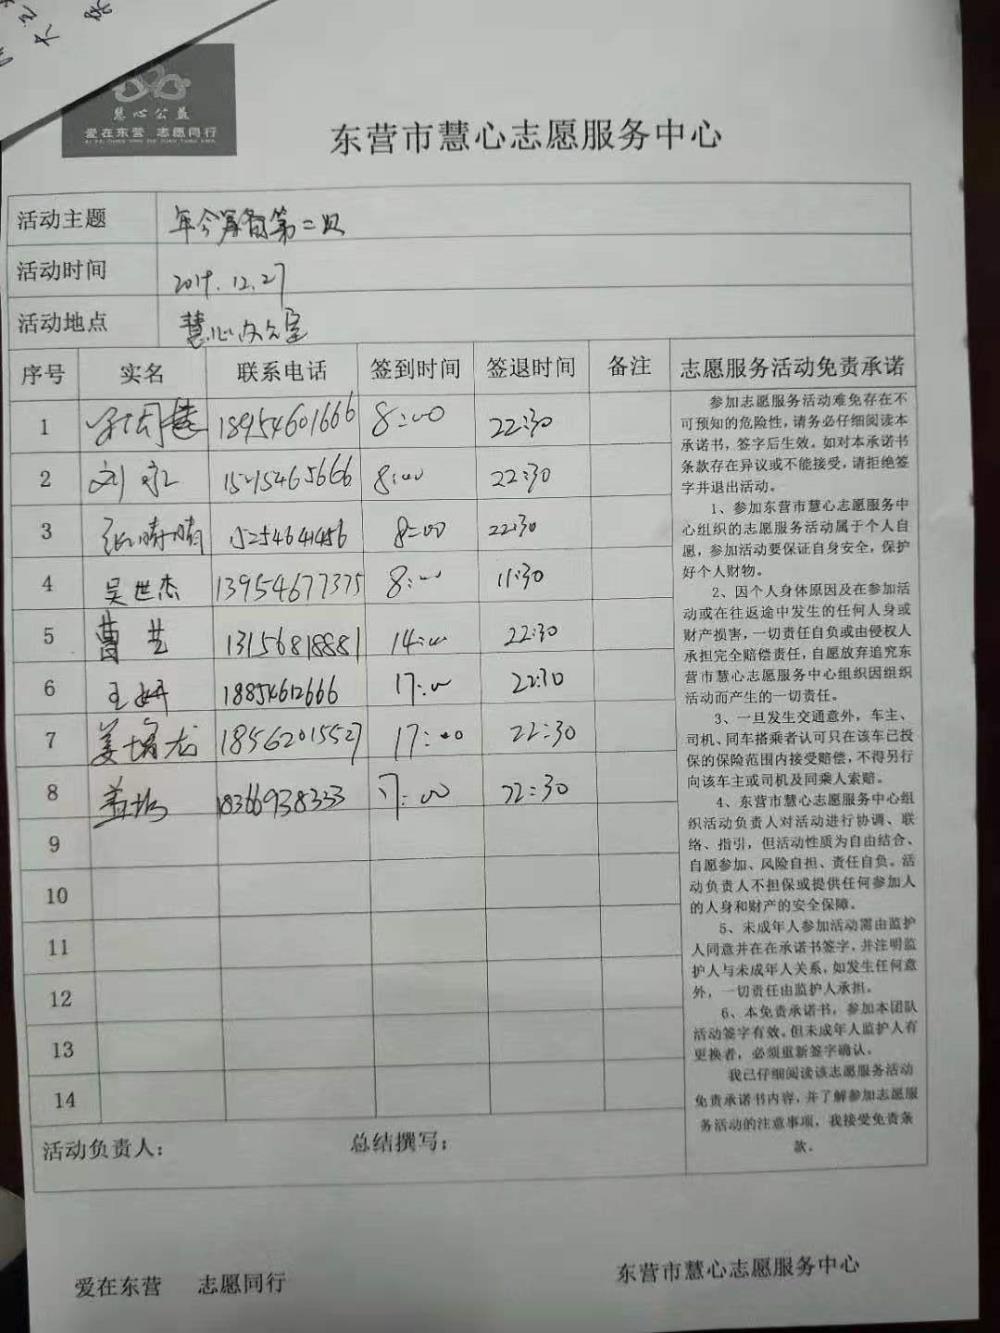 慧心公益
爱在东营 志愿同行
东营市慧心志愿服务中心
活动主题 年会筹备第二次
活动时间 2019.12.27
活动地点 慧心办公室
序号 实名 联系电话 签到时间 签退时间 备注 志愿服务活动免责承诺
1 18954601666 8:00 22:30
2 刘 15154656666 8:00 22:30
3 张晴晴 15254641456 8:00 22:30
4 吴世杰 13954677375 8:00 11:30
5 曹艺 13156818881 14:00 22:30
6 王妍 18854612666 17:00 22:30
7 姜增龙 18562015527 17:00 22:30
8 盖 18366938333 17:00 22:30
9
10
11
12
13
14
参加志愿服务活动难免存在不
可预知的危险性，请务必仔细阅读本
承诺书，签字后生效。如对本承诺书
条款存在异议或不能接受，请拒绝签
字并退出活动。
1、参加东营市慧心志愿服务中
心组织的志愿服务活动属于个人自
愿，参加活动要保证自身安全，保护
好个人财物。
2、因个人身体原因及在参加活
动或在往返途中发生的任何人身或
财产损害，一切责任自负或由侵权人
承担完全赔偿责任，自愿放弃追究东
营市慧心志愿服务中心组织因组织
活动而产生的一切责任。
3、一旦发生交通意外，车主、
司机、同车搭乘者认可只在该车已投
保的保险范围内接受赔偿，不得另行
向该车主或司机及同乘人索赔。
4、东营市慧心志愿服务中心组
织活动负责人对活动进行协调、联
络、指引，但活动性质为自由结合、
自愿参加、风险自担、责任自负。活
动负责人不担保或提供任何参加人
的人身和财产的安全保障。
5、未成年人参加活动需由监护
人同意并在在承诺书签字，并注明监
护人与未成年人关系，如发生任何意
外，一切责任由监护人承担。
6、本免责承诺书，参加本团队
活动签字有效。但未成年人监护人有
更换者，必须重新签字确认。
我已仔细阅读该志愿服务活动
免责承诺书内容，并了解参加志愿服
务活动的注意事项，我接受免责条
款。
活动负责人： 总结撰写：
爱在东营 志愿同行
东营市慧心志愿服务中心